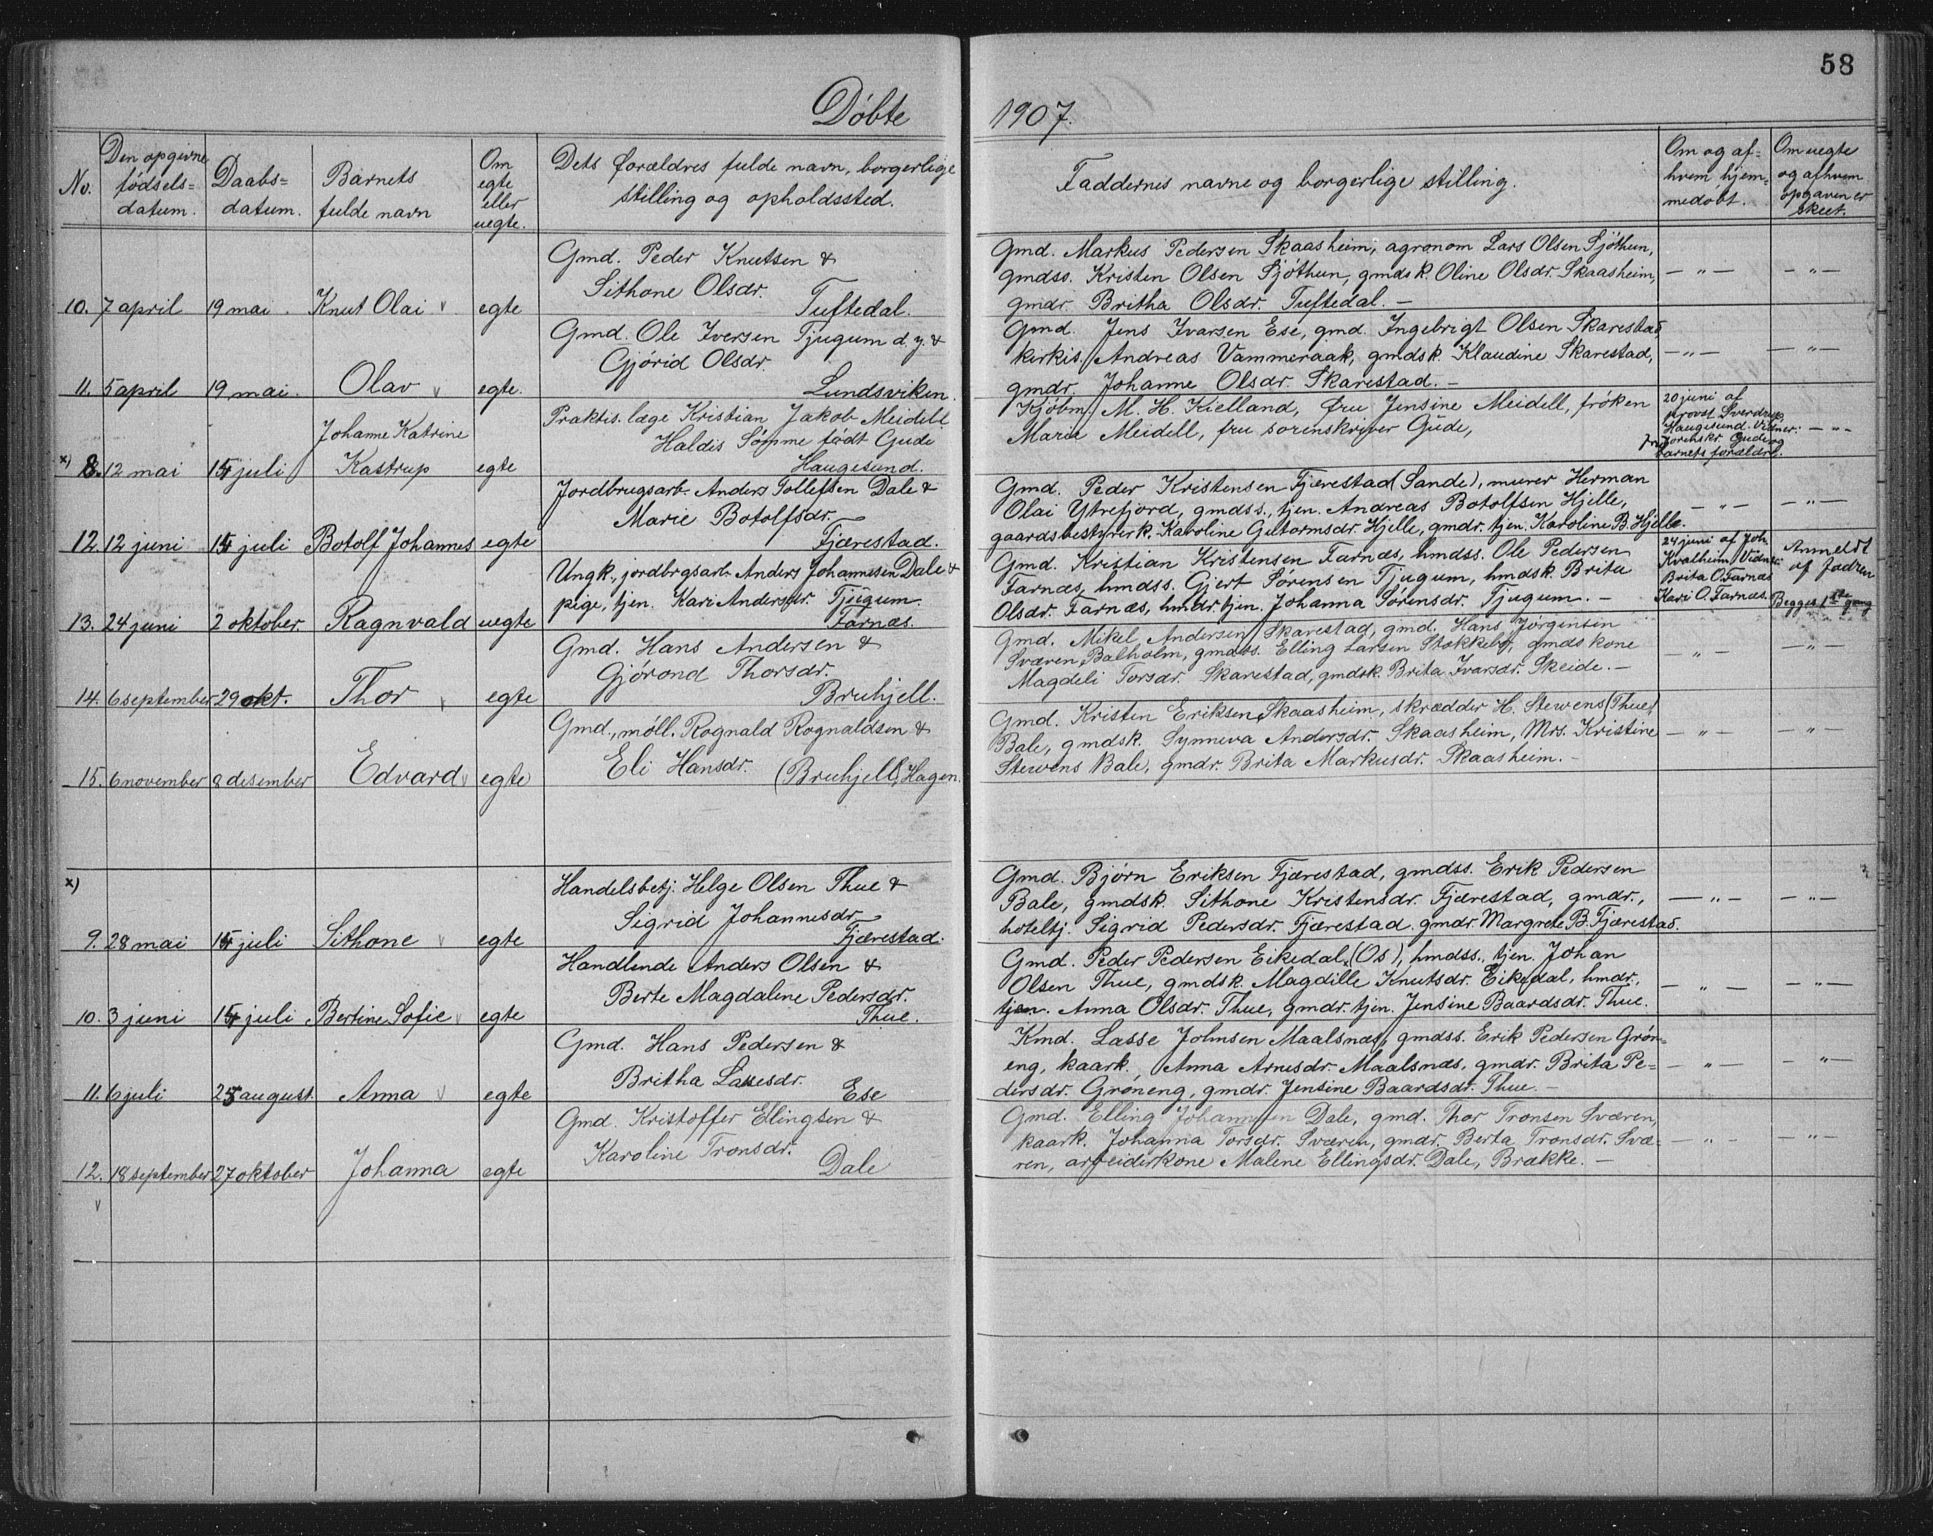 58
Döbte 1907.
No.
Den opgivne
födsels=
datum.
Daabs=
datum.
Barnets
fulde navn
Om
egte
eller
uegte.
Dets forældres fulde navn, borgerlige
stilling og opholdssted.
Faddernes navne og borgerlige stilling.
Om og af=
hvem hjem=
medöbt.
Om uegte
og afhvem
opgaven er
skeet.
10. 7 april 19 mai. Knut Olai egte
Gmd. Peder Knutsen &
Sithone Olsdr.
Tuftedal.
Gmd. Markus Pedersen Skaasheim, agronom Lars Olsen Sjöthun,
gmdss. Kristen Olsen Sjöthun, gmdsk. Oline Olsdr. Skaasheim,
gmdr. Britha Olsdr. Tuftedal. —
— „ — — „ —
11. 5 april 19 mai. Olav egte.
Gmd. Ole Iversen Tjugum d. y. &
Gjörid Olsdr.
Lundsviken.
Gmd. Jens Ivarsen Ese, gmd. Ingebrigt Olsen Skarestad,
kirkis. Andreas Vammeraak, gmdsk. Klaudine Skarestad,
gmdr. Johanne Olsdr. Skarestad. —
— „ — — „ —
x) 8. 12 mai 14 juli
Johanne Katrine
Kastrup egte
Praktis. læge Kristian Jakob Meidell
Haldis Sömme födt Gude
Haugesund.
Kjöbm. M. H. Kielland, fru Jensine Meidell, fröken
Maria Meidell, fru sorenskriver Gude,
20 juni af
provst Sverdrup
Haugesund. Vidner:
Sorenskr. Gude og
barnets forældre.
— „ —
12. 12 juni 14 juli Botolf Johannes egte
Jordbrugsarb. Anders Tollefsen Dale &
Marie Botolfsdr.
Fjærestad.
Gmd. Peder Kristensen Fjærestad (Sande), murer Herman
Olai Ytrefjord, gmdss., tjen. Andreas Botolfsen Hjelle,
gaardsbestyrerk. Karoline Gutormsdr. Hjelle, gmdr. tjen. Karoline B. Hjelle.
— „ — — „ —
13. 24 juni 2 oktober. Ragnvald uegte
Ungk., jordbrgsarb. Anders Johannesen Dale &
pige, tjen. Kari Andersdr. Tjugum.
Farnæs.
Gmd. Kristian Kristensen Farnæs, hmdss. Ole Pedersen
Farnæs, hmdss. Gjert Sörensen Tjugum, hmdsk. Brita
Olsdr. Farnæs, hmdr. tjen. Johanna Sörensdr. Tjugum. —
24 juni af Joh.
Kvalheim. Vidner:
Brita O. Farnæs
Kari O. Farnæs.
Anmeldt
af Jodren
Begges 1ste gang
14. 6 september 29 okt. Thor egte
Gmd. Hans Andersen &
Gjörond Thorsdr.
Bruhjell.
Gmd. Mikel Andersen Skarestad, gmd. Hans Jörgensen
Sværen, Balholm, gmdss. Elling Larsen Stokkebö, gmdskone
Magdeli Torsdr. Skarestad, gmdsk. Brita Ivarsdr. Skeide. —
— „ — — „ —
15. 6 november 8 desember Edvard egte
Gmd., möll. Rognald Rognaldsen &
Eli Hansdr. (Bruhjell), Hagen.
Gmd. Kristen Eriksen Skaasheim, skrædder H. Stewens (Thue)
Bale, gmdsk. Synneva Andersdr. Skaasheim, Mrs. Kristine
Stewens Bale, gmdr. Brita Markusdr. Skaasheim. —
— „ — — „ —
x)
9. 28 mai 14 juli Sithone egte
Handelsbetj. Helge Olsen Thue &
Sigrid Johannesdr.
Fjærestad.
Gmd. Björn Eriksen Fjærestad, gmdss. Erik Pedersen
Bale, gmdsk. Sithone Kristensdr. Fjærestad, gmdr.,
hoteltj. Sigrid Pedersdr. Fjærestad. gmdr. Margrete B. Fjærestad.
— „ — — „ —
10. 3 juni 14 juli Bertine Sofie egte
Handlende Anders Olsen &
Berte Magdalene Pedersdr.
Thue.
Gmd. Peder Pedersen Eikedal (Os), hmdss., tjen. Johan
Olsen Thue, gmdsk. Magdille Knutsdr. Eikedal, hmdr.,
tjen. Anna Olsdr. Thue, gmdr. tjen. Jensine Baardsdr. Thue.
— „ — — „ —
11. 6 juli 25 august. Anna egte
Gmd. Hans Pedersen &
Britha Lassesdr.
Ese
Kmd. Lasse Johnsen Maalsnæs, gmdss. Erik Pedersen Grön=
eng, kaark. Anna Arnesdr. Maalsnæs, gmdr. Brita Pe=
dersdr. Gröneng, gmdr. Jensine Baardsdr. Thue. —
— „ — — „ —
12. 18 september 27 oktober Johanna egte
Gmd. Kristoffer Ellingsen &
Karoline Tronsdr.
Dale
Gmd. Elling Johannesen Dale, gmd. Thor Tronsen Sværen,
kaark. Johanna Torsdr. Sværen, gmdr. Berta Tronsdr. Svæ=
ren, arbeiderkone Malene Ellingsdr. Dale, Brække. —
— „ — — „ —